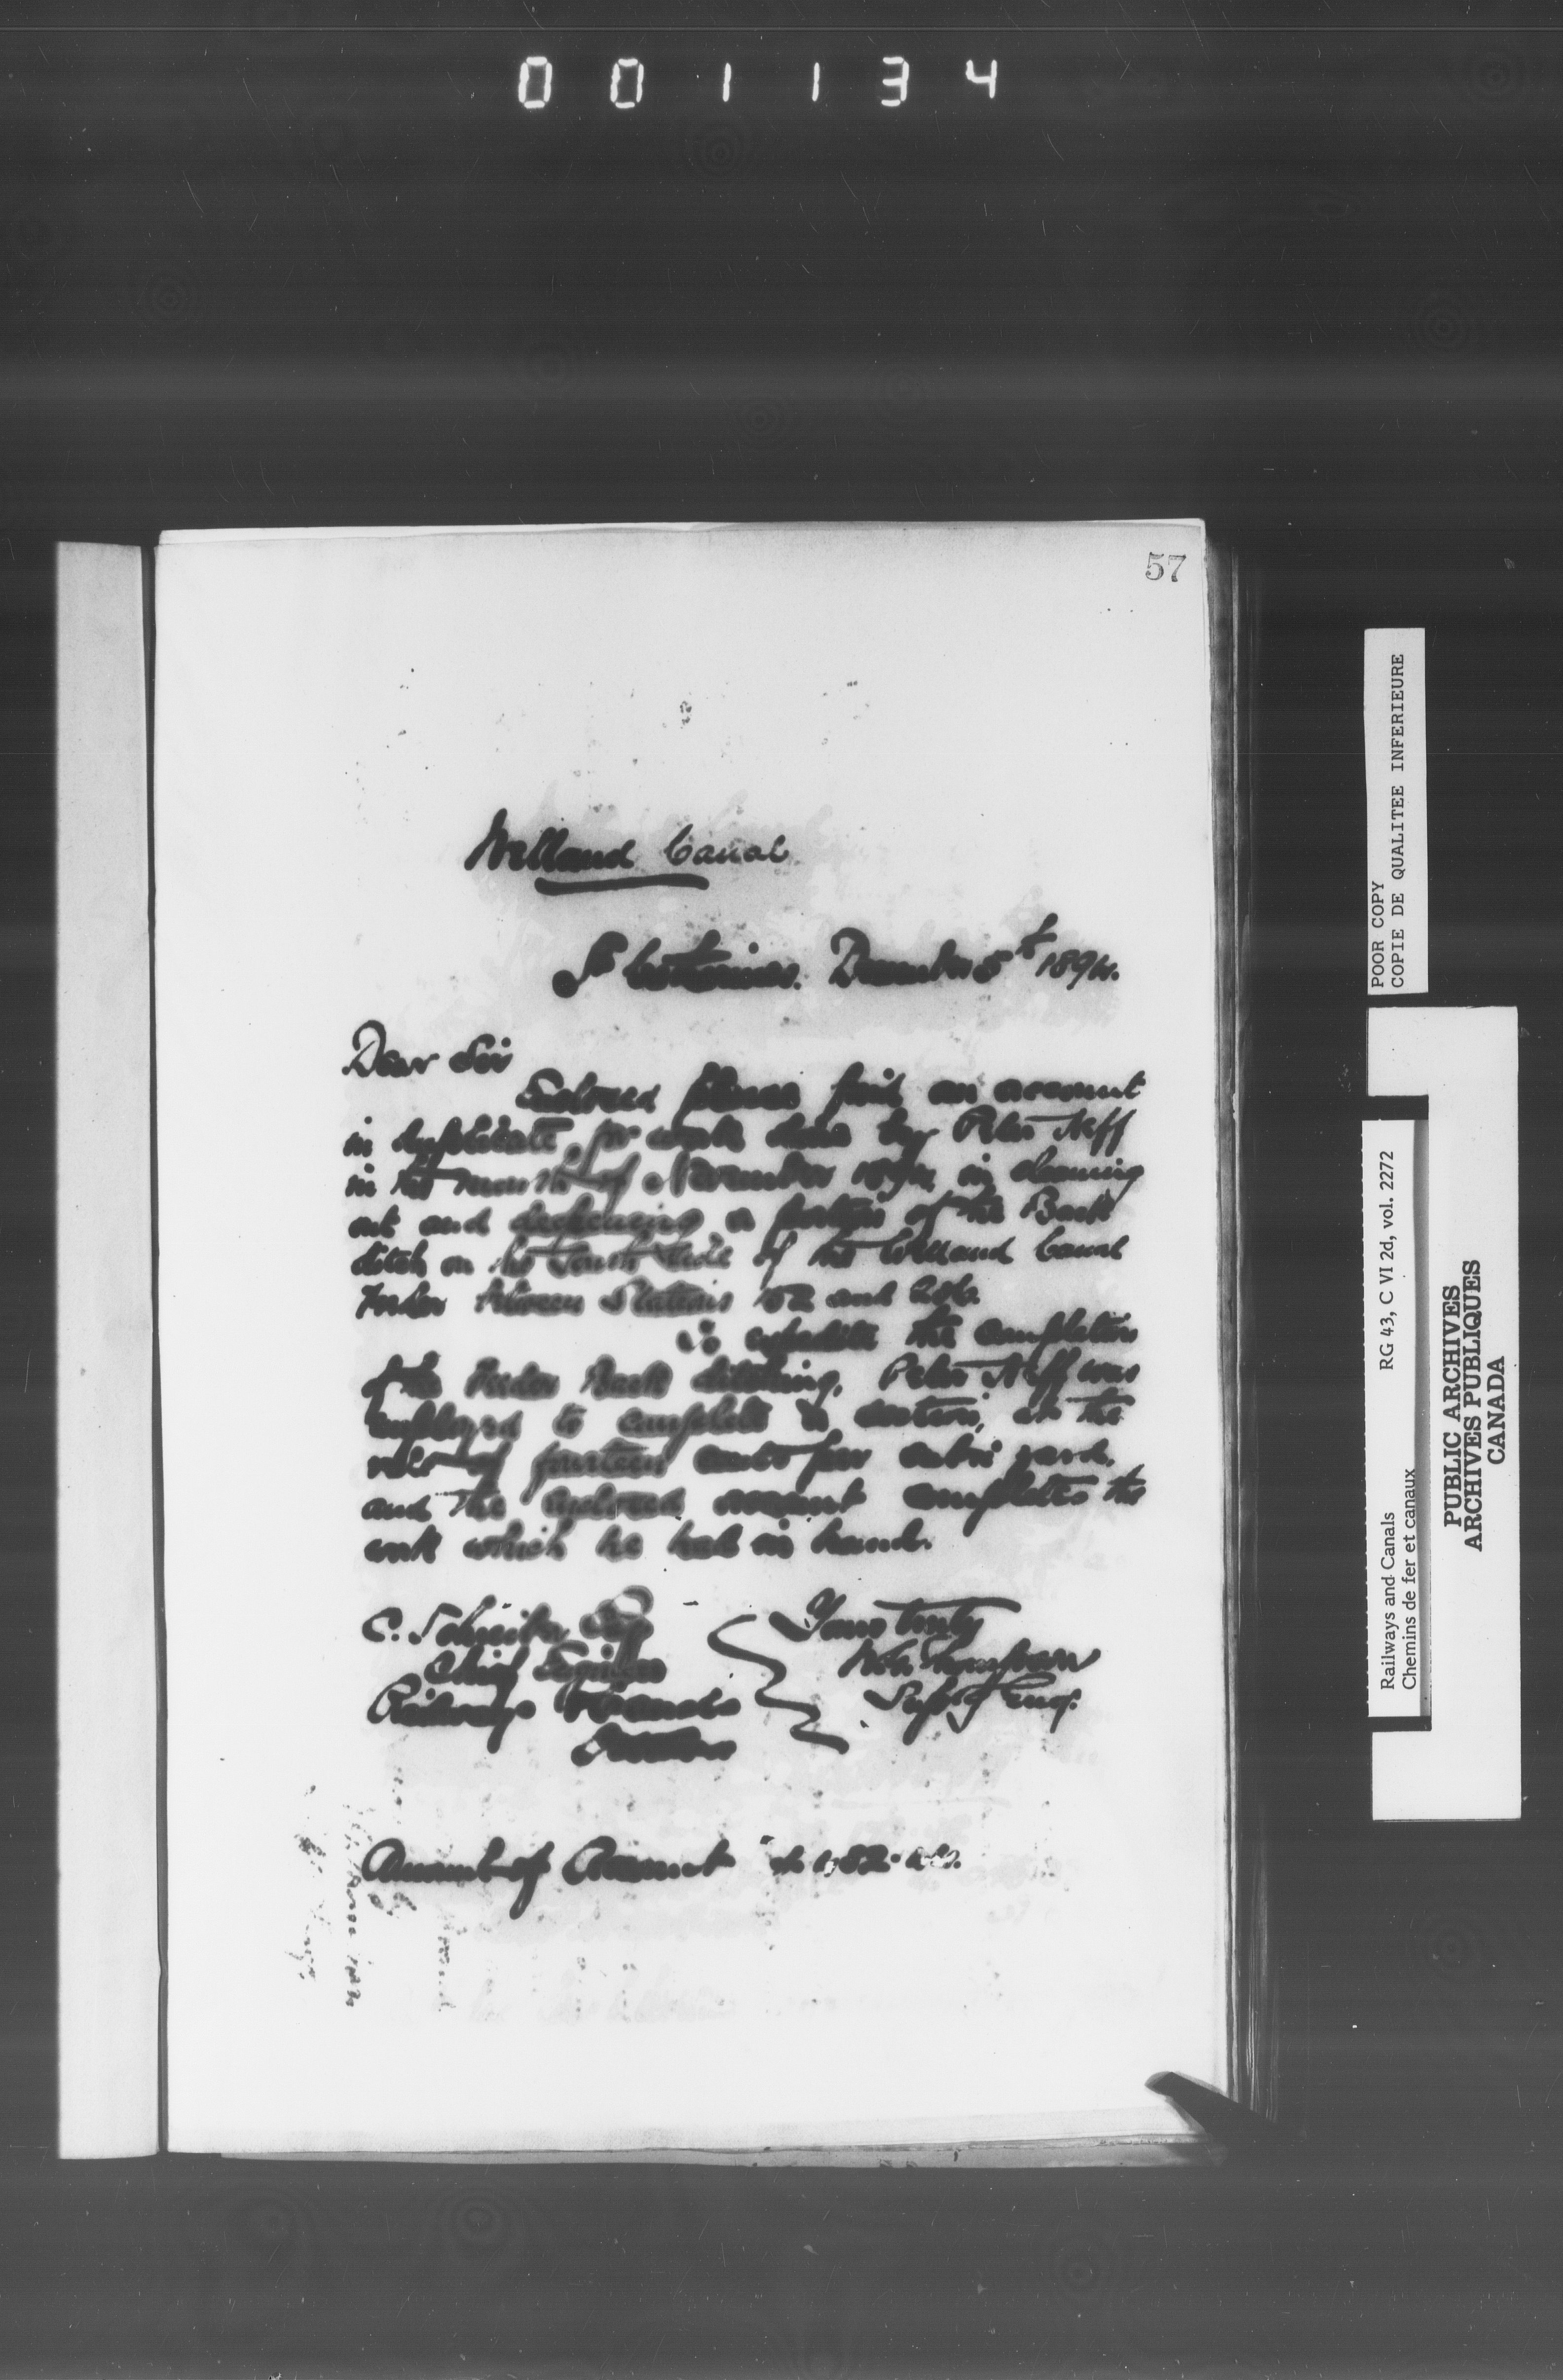 001134
57
Welland Canal
St Catharines. December 5th 1894.
Dear Sir
Enclosed please find an account
in duplicate, for work done by Peter Neff
in the month of November 1894 in cleaning
out and deepening a portion of the Back
ditch on the South side of the Welland Canal
Feeder between Stations 152 and
To expedite the completion
of the Feeder Back ditching, Peter Neff was
employed to complete a section, at the
rate of fourteen cents per cubic yard,
and the enclosed account completes the
work which he had in hand.
C. Schreiber Esq
Chief Engineer
Railways & Canals
Ottawa
Yours truly
W. G. Thompson
Supt g Eng.
Amount of Account
POOR COPY
COPIE DE QUALITEE INFERIEURE
Railways and Canals RG 43, C VI 2d, vol. 2272
Chemins de fer et canaux
PUBLIC ARCHIVES
ARCHIVES PUBLIQUES
CANADA